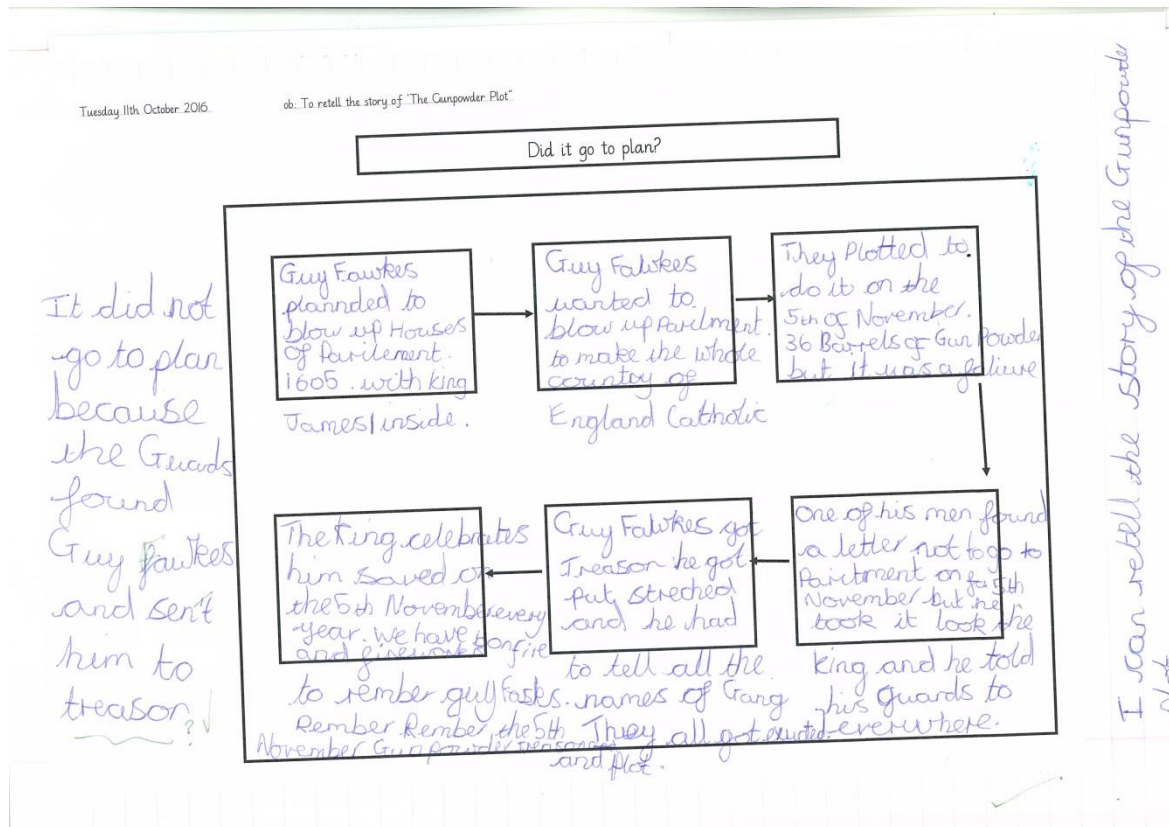 Tuesday 11th October 2016
ob: To retell the story of "The Gunpowder Plot"
Did it go to plan?
It did not
go to plan
because
the Guards
found
Guy fawkes
and sen't
him to
treason
?
Guy Fawkes
plannded to
blow up Houses
of Parilement.
1605. with king
James 1 inside.
Guy Falwkes
wanted to
blow up Parilment.
to make the whole
country of
England Catholic
They Plotted to.
do it on the
5th of November.
36 Barrels of Gun Powder
but it was a
One of his men found
a letter not to go to
on 5th
November but he
took it look the
king and he told
his guards to
everwhere.
Guy Fawkes got
Treason he got
put streched
and he had
to tell all the
names of Gang
They all got
The King celebrates
him saved on
the 5th November every
year. We have
and fireworks bonfire
to rember guy
Rember Rember the 5th
November Gunpowder treason
and plot.
I can retell the story of the Gunpowder
plot